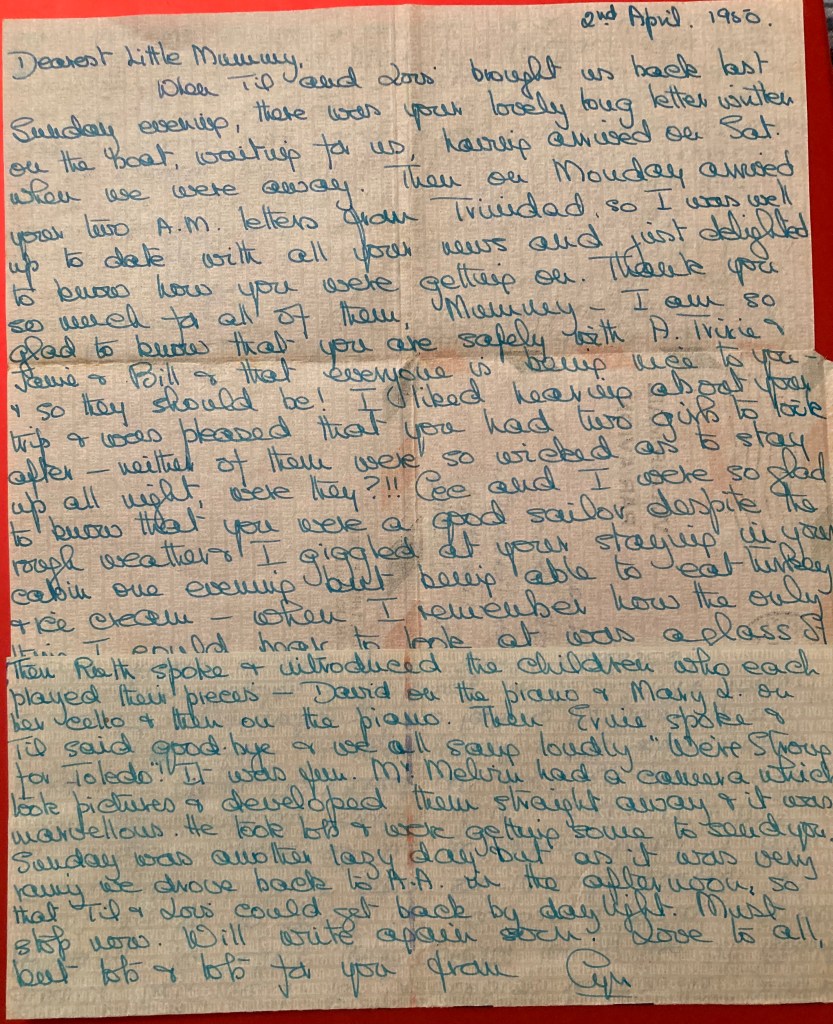 2nd April. 1950.
Dearest Little Mummy,
When Til and Lois brought us back last
Sunday evening, there was your lovely long letter written
on the boat, waiting for us, having arrived on Sat.
when we were away. Then on Monday arrived
your two A.M. letters from Trinidad, so I was well
up to date with all your news and just delighted
to know how you were getting on. Thank you
so much for all of them, Mummy – I am so
glad to know that you are safely with A. Trixie &
& Bill & that everyone is being nice to you –
& so they should be! I liked hearing about your
trip & was pleased that you had two girls to look
after – neither of them were so wicked as to stay
up all night, were they?!! Cee and I were so glad
to know that you were a good sailor despite the
rough weather & I giggled at your staying in your
cabin one evening but being able to eat turkey
& ice cream – when I remember how the only
thing I could bear to look at was a glass of
Then Ruth spoke & introduced the children who each
played their pieces – David on the piano & Mary L. on
her cello & then on the piano. Then Ernie spoke &
Til said good-bye & we all sang loudly "We're Strong
for Toledo"! It was fun. Mr Melvin had a camera which
took pictures & developed them straight away & it was
marvellous. He took lots & we're getting some to send you.
Sunday was another lazy day but as it was very
rainy we drove back to A.A. in the afternoon, so
that Til & Lois could get back by daylight. Must
stop now. Will write again soon. Love to all,
but lots & lots for you from